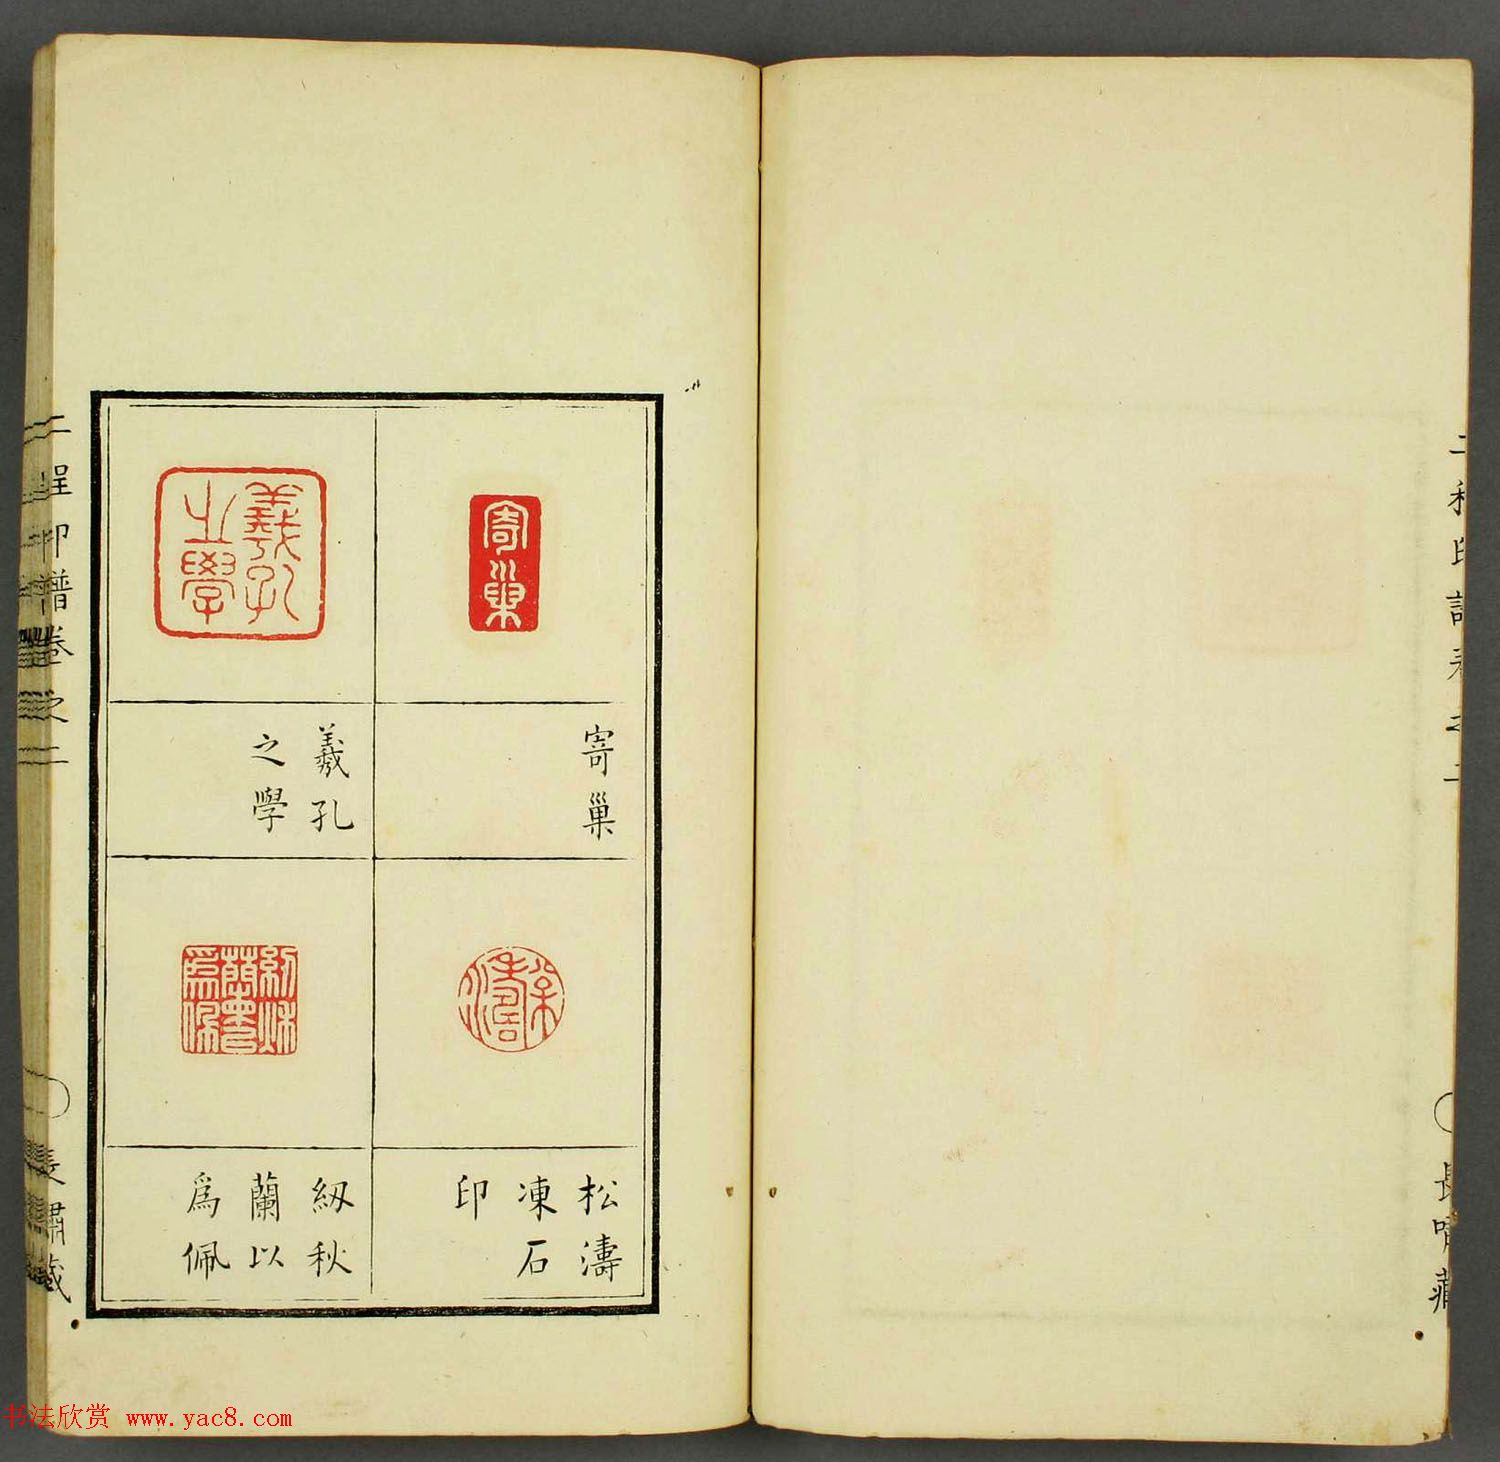 寄巢
寄巢
羲孔
之學
羲孔
之學
松濤
松濤
凍石
印
紉秋
蘭以
爲佩
紉秋
蘭以
爲佩
二程印譜卷之二
長嘯藏
二程印譜卷之二
長嘯藏
书法欣赏 www.yac8.com